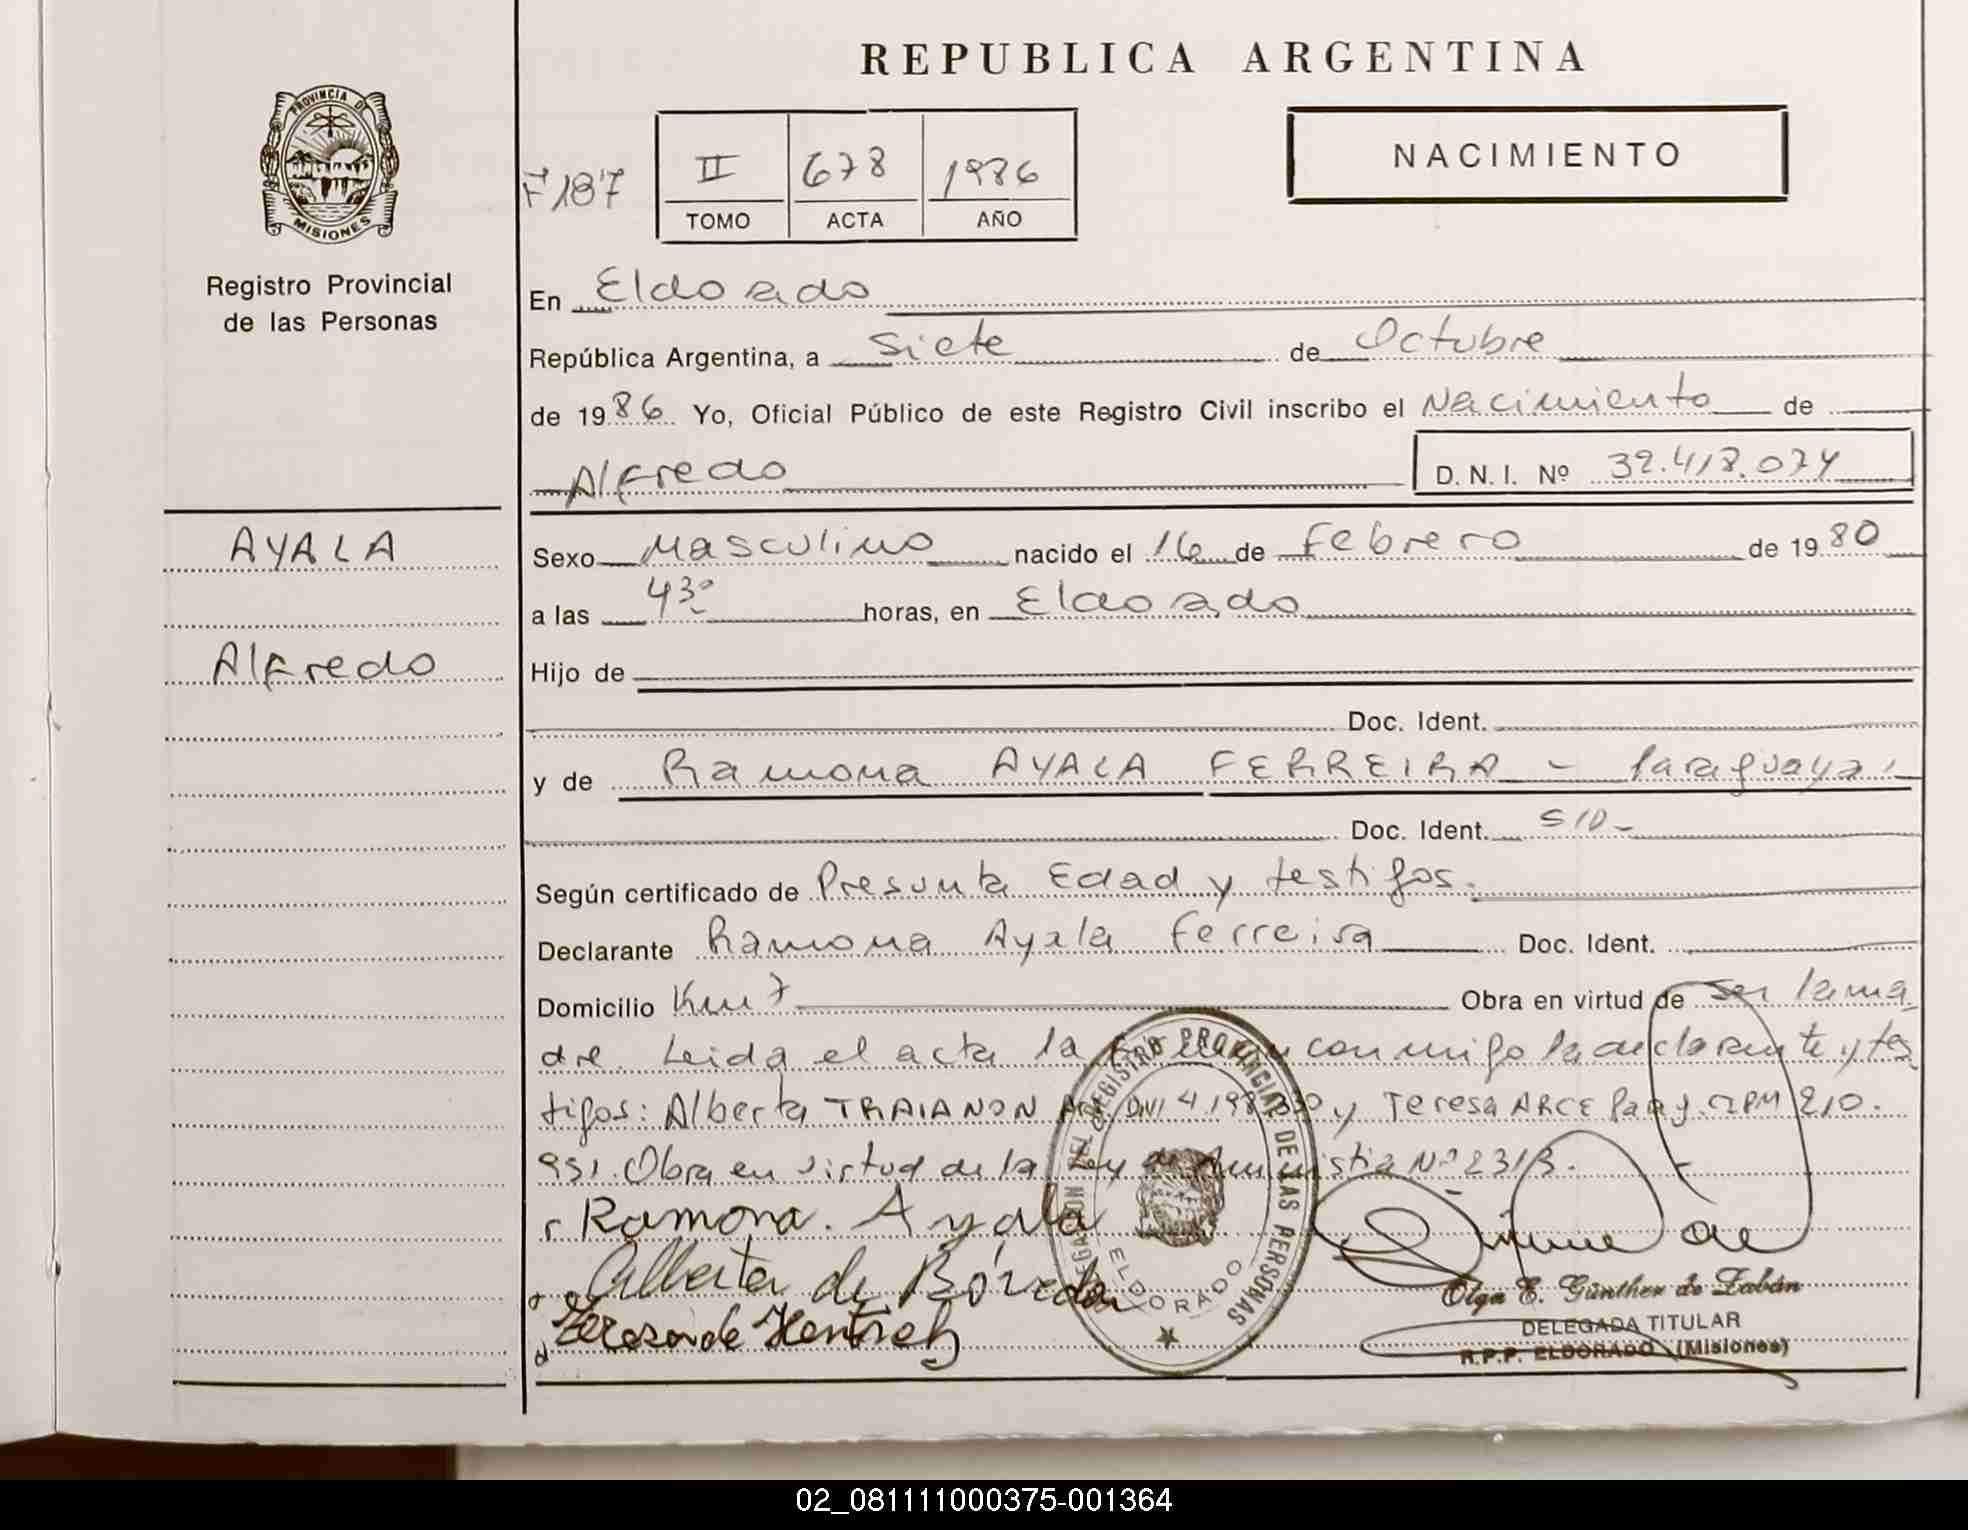 REPUBLICA ARGENTINA
PROVINCIA DE
MISIONES
Registro Provincial
de las Personas
F 187
II 678 1986
TOMO ACTA AÑO
NACIMIENTO
En Eldorado
República Argentina, a Siete de Octubre
de 1986 Yo, Oficial Público de este Registro Civil inscribo el Nacimiento de
Alfredo D. N. I. Nº 32.418.074
AYALA
Sexo Masculino nacido el 16 de Febrero de 1980
a las 4³⁰ horas, en Eldorado
Alfredo
Hijo de
Doc. Ident.
y de Ramona AYALA FERREIRA - Paraguaya.
Doc. Ident. S/D-
Según certificado de Presunta Edad y testigos.
Declarante Ramona Ayala Ferreira Doc. Ident.
Domicilio Km 7 Obra en virtud de ser la ma
dre. Leida el acta la firman conmigo la declarante y tes
tigos: Alberta TRAIANON Arg. DNI 4.198.330 y Teresa ARCE Parag. CIPM 210.
951. Obra en virtud de la Ley de Amnistia Nº 2313.
Ramona. Ayala
Alberta de Bóveda
Teresa de Hentsch
DELEGACION DEL REGISTRO PROVINCIAL DE LAS PERSONAS
ELDORADO
Olga E. Günther de Zabán
DELEGADA TITULAR
R.P.P. ELDORADO (Misiones)
02_081111000375-001364